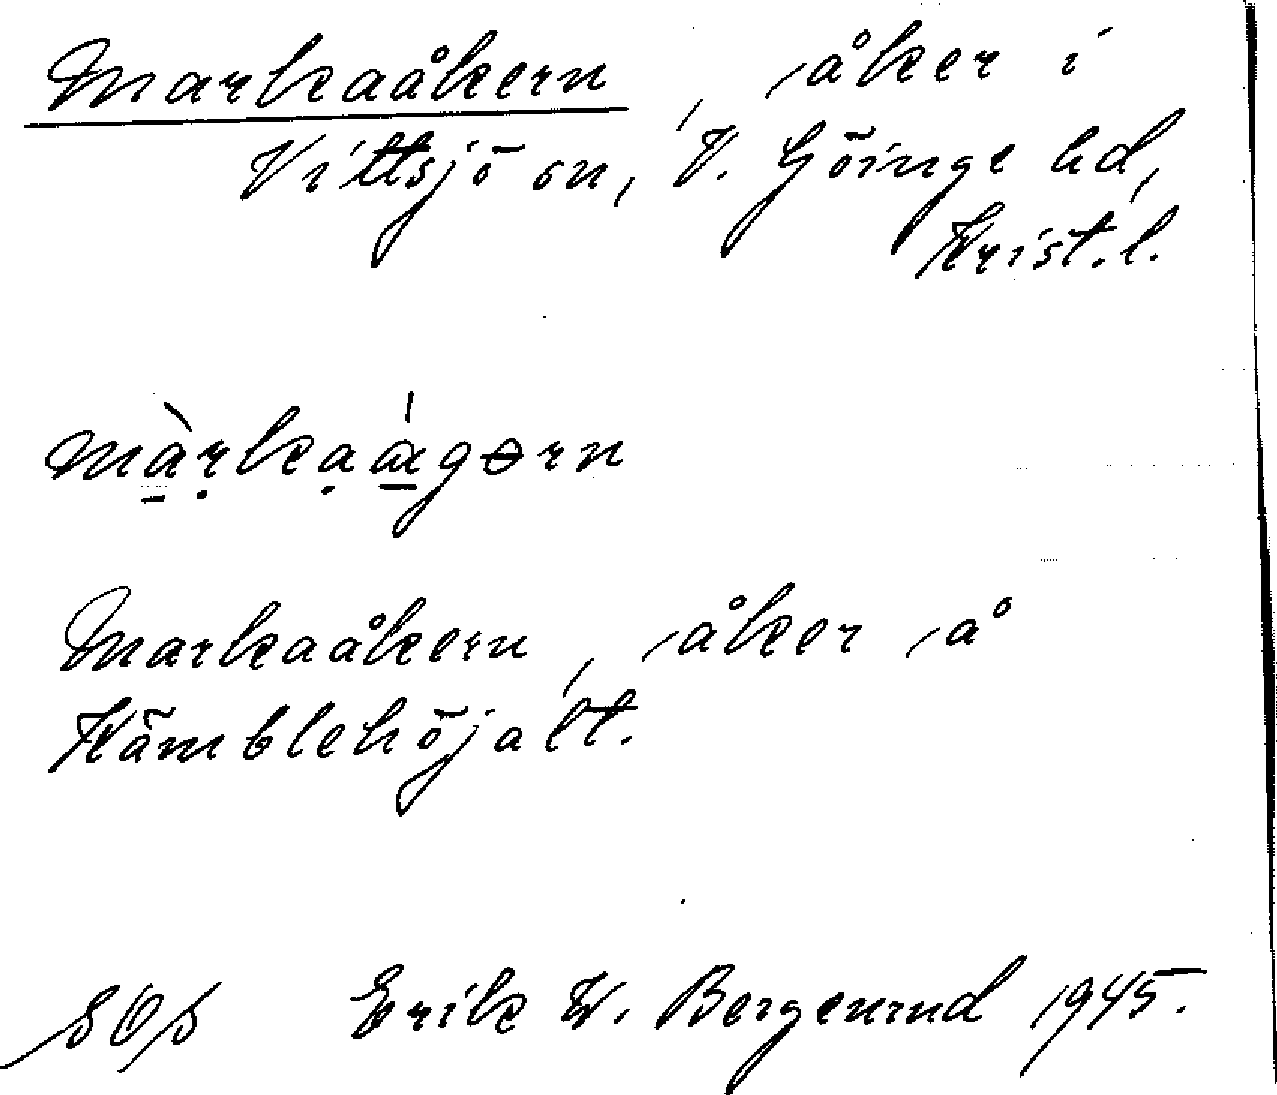 Markaåkern, åker i
Vittsjö sn, V. Göinge hd,
Krist. l.
màrkaágərn
Markaåkern, åker på
Hämblehöjalt.
Erik W. Bergenrud 1945.